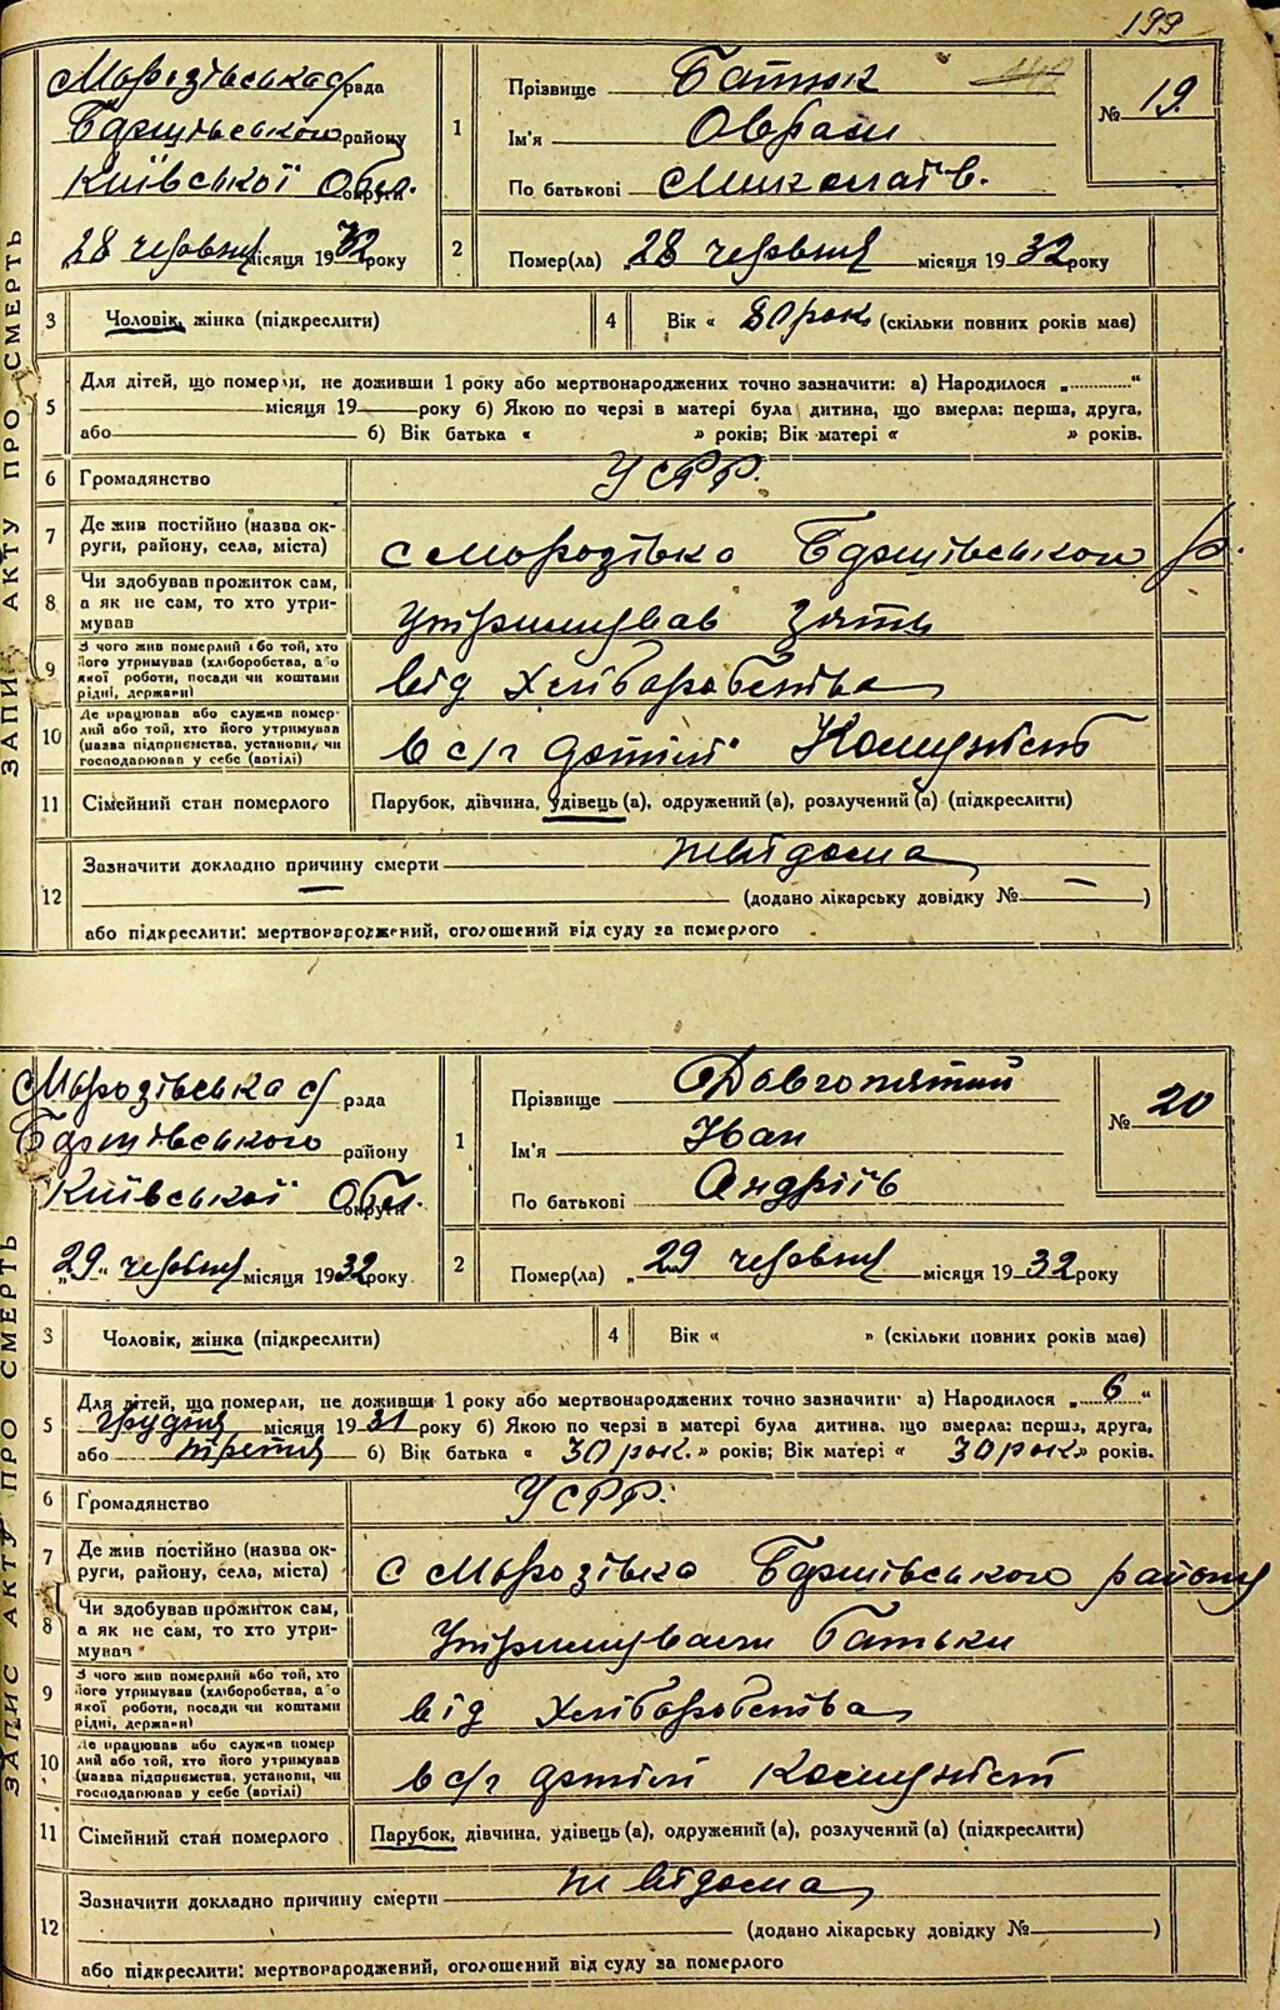 199
Морозівська с/рада
Баришівського району
Київської Обл. округи
„28 червня місяця 1932 року
1
Прізвище Батюк
Ім'я Оврам
По батькові Миколаїв.
№ 19.
2
Помер(ла) „28 червня місяця 1932 року
3 Чоловік, жінка (підкреслити)
4 Вік « 80 рок. » (скільки повних років має)
5 Для дітей, що померли, не доживши 1 року або мертвонароджених точно зазначити: а) Народилося „............“
місяця 19 року б) Якою по черзі в матері була дитина, що вмерла: перша, друга,
або б) Вік батька « » років; Вік матері « » років.
6 Громадянство УСРР.
7 Де жив постійно (назва ок-
руги, району, села, міста)
с Морозівка Баришівського р.
8 Чи здобував прожиток сам,
а як не сам, то хто утри-
мував
Утримував зять
9 З чого жив померлий або той, хто
його утримував (хліборобства, або
якої роботи, посади чи коштами
рідні, держави)
від Хліборобства
10 Де працював або служив помер-
лий або той, хто його утримував
(назва підприємства, установи, чи
господарював у себе (артілі)
в с/г артілі Комуніст
11 Сімейний стан померлого Парубок, дівчина, удівець (а), одружений (а), розлучений (а) (підкреслити)
12 Зазначити докладно причину смерти невідома
(додано лікарську довідку № — )
або підкреслити: мертвонароджений, оголошений від суду за померлого
ЗАПИС АКТУ ПРО СМЕРТЬ
Морозівська с/ рада
Баришівського району
Київської Обл. округи
„29“ червня місяця 1932 року
1
Прізвище Довгопятий
Ім'я Іван
По батькові Андріїв
№ 20
2
Помер(ла) „29 червня місяця 1932 року
3 Чоловік, жінка (підкреслити)
4 Вік « » (скільки повних років має)
5 Для дітей, що померли, не доживши 1 року або мертвонароджених точно зазначити: а) Народилося „6“
грудня місяця 1931 року б) Якою по черзі в матері була дитина, що вмерла: перша, друга,
або третя б) Вік батька « 30 рок. » років; Вік матері « 30 рок » років.
6 Громадянство УСРР.
7 Де жив постійно (назва ок-
руги, району, села, міста)
с Морозівка Баришівського району
8 Чи здобував прожиток сам,
а як не сам, то хто утри-
мував
Утримували батьки
9 З чого жив померлий або той, хто
його утримував (хліборобства, або
якої роботи, посади чи коштами
рідні, держави)
від Хліборобства
10 Де працював або служив помер
лий або той, хто його утримував
(назва підприємства, установи, чи
господарював у себе (артілі)
в с/г артілі Комуніст
11 Сімейний стан померлого Парубок, дівчина, удівець (а), одружений (а), розлучений (а) (підкреслити)
12 Зазначити докладно причину смерти невідома
(додано лікарську довідку № )
або підкреслити: мертвонароджений, оголошений від суду за померлого
ЗАПИС АКТУ ПРО СМЕРТЬ